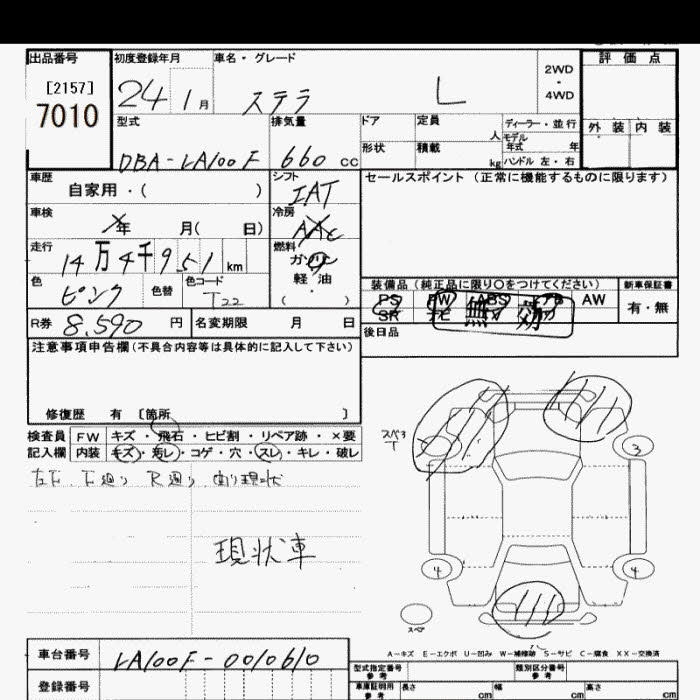 出品番号
[2157]
7010
初度登録年月
24 1月
車名・グレード
ステラ L
2WD
・
4WD
評価点
外装 内装
型式
DBA-LA100F
排気量
660 cc
ドア
定員
人
ディーラー・並行
モデル
年式 年
形状
積載
kg
ハンドル 左・右
車歴
自家用・( )
シフト
IAT
セールスポイント (正常に機能するものに限ります)
車検
年 月( 日)
冷房
AAC
走行
14万4千951km
燃料
ガソリン
軽油
( )
色
ピンク
色替
色コード
T22
装備品 (純正品に限り○をつけてください)
新車保証書
PS PW ABS AW
SR ナビ
有・無
R券 8,590 円
名変期限 月 日
後日品
注意事項申告欄(不具合内容等は具体的に記入して下さい)
修復歴 有 〔箇所 〕
検査員 FW キズ・飛石・ヒビ割・リペア跡・×要
記入欄 内装 キズ・汚レ・コゲ・穴・スレ・キレ・破レ
現状車
スペア
T
3
4
4
スペア
A-キズ E-エクボ U-凹み W-補修跡 S-サビ C-腐食 XX-交換済
車台番号 LA100F-0010610
型式指定番号
参考
類別区分番号
参考
登録番号
車庫証明用
参考
長さ cm 幅 cm 高さ cm